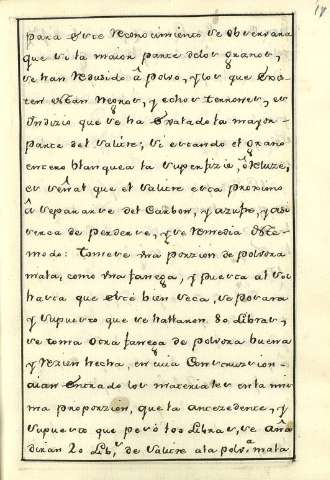 17
para este reconocimiento se observara
que si la maior parte delos granos,
se han reduzido â polvo, y los que exis
ten estan negros, y echos terrones, es
indizio que se ha exalado la mayor
parte del salitre; si estando el grano
entero blanquea la superfizie, ô reluze,
es señal que el salitre esta proximo
â separarse del carbon, y azufre, y asi
cerca de perderse, y se remedia deste
modo: tomese una porzion de polvora
mala, como una fanega, y puesta al sol
hasta que esté bien seca, se pesara
y supuesto que se hallaron 80 libras,
se toma otra fanega de polvora buena
y rezien hecha, en cuia construzion
aian entrado los materiales en la mis
ma proporzion, que la antezedente, y
supuesto que pesó 100 libras, se aña
diran 20 lib.s de salitre ala polv.a mala